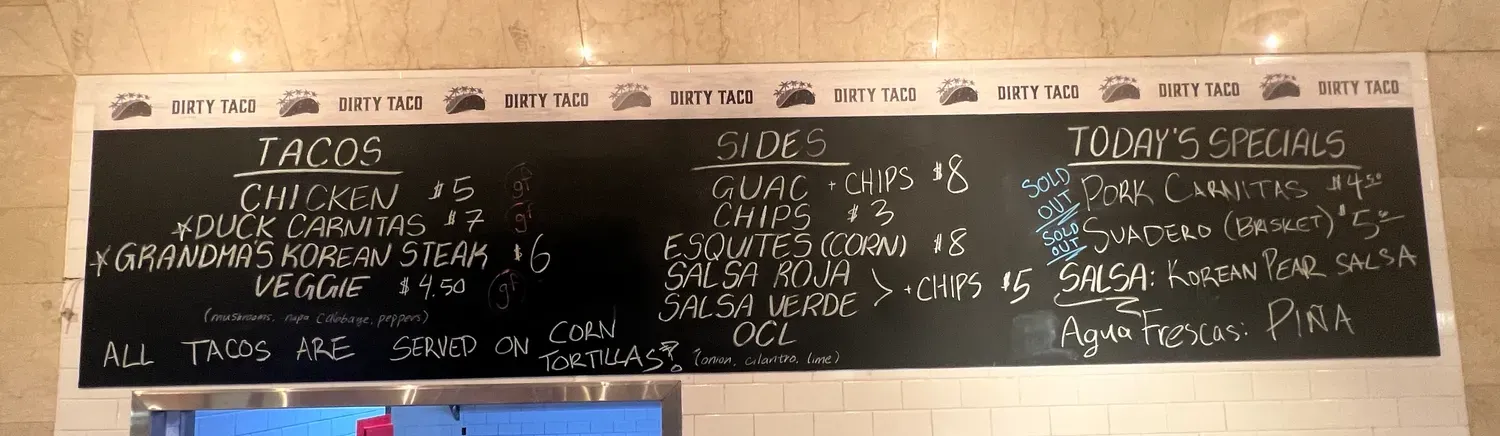 DIRTY TACO DIRTY TACO DIRTY TACO DIRTY TACO DIRTY TACO DIRTY TACO DIRTY TACO DIRTY TACO
TACOS
CHICKEN $5
*DUCK CARNITAS $7
*GRANDMA'S KOREAN STEAK $6
VEGGIE $4.50 gf
(mushrooms, napa cabbage, peppers)
ALL TACOS ARE SERVED ON CORN
TORTILLAS!
SIDES
GUAC + CHIPS $8
CHIPS $3
ESQUITES (CORN) $8
SALSA ROJA
SALSA VERDE > + CHIPS $5
OCL
(onion, cilantro, lime)
TODAY'S SPECIALS
SOLD OUT PORK CARNITAS $4.50
SOLD OUT SUADERO (BRISKET) $5
SALSA: KOREAN PEAR SALSA
Agua Frescas: PIÑA